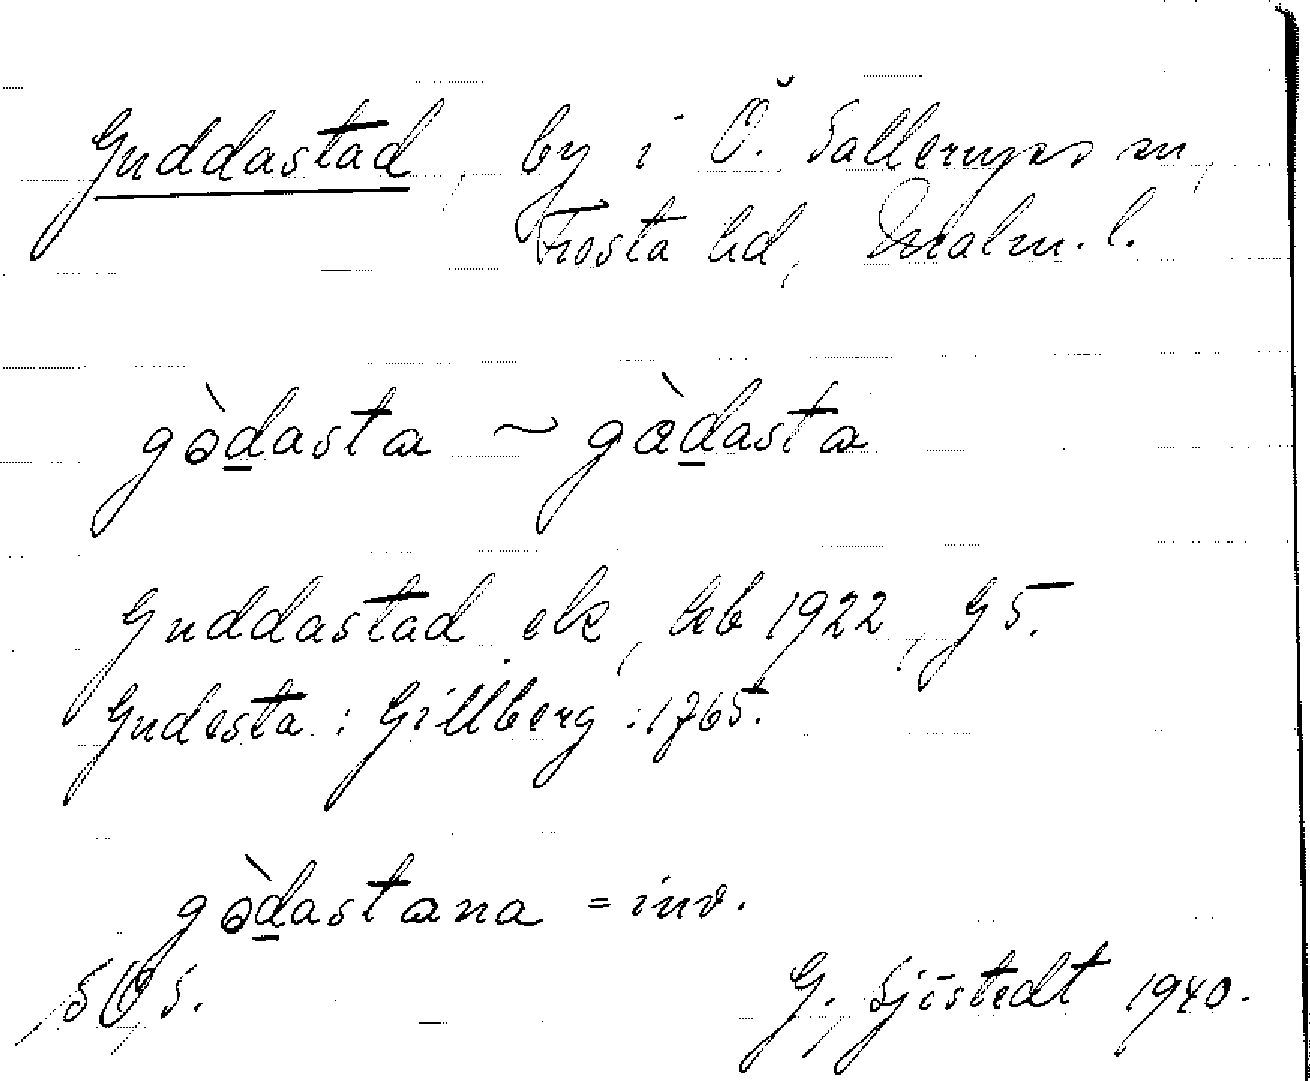 Guddastad, by i Ö. Sallerups sn,
Frosta hd, Malm. l.
gə̀dasta ~ gàdasta
Guddastad ek, kb 1922, G5.
Gudesta : Gillberg : 1765.
gə̀dastana = inv.
G. Sjöstedt 1940.